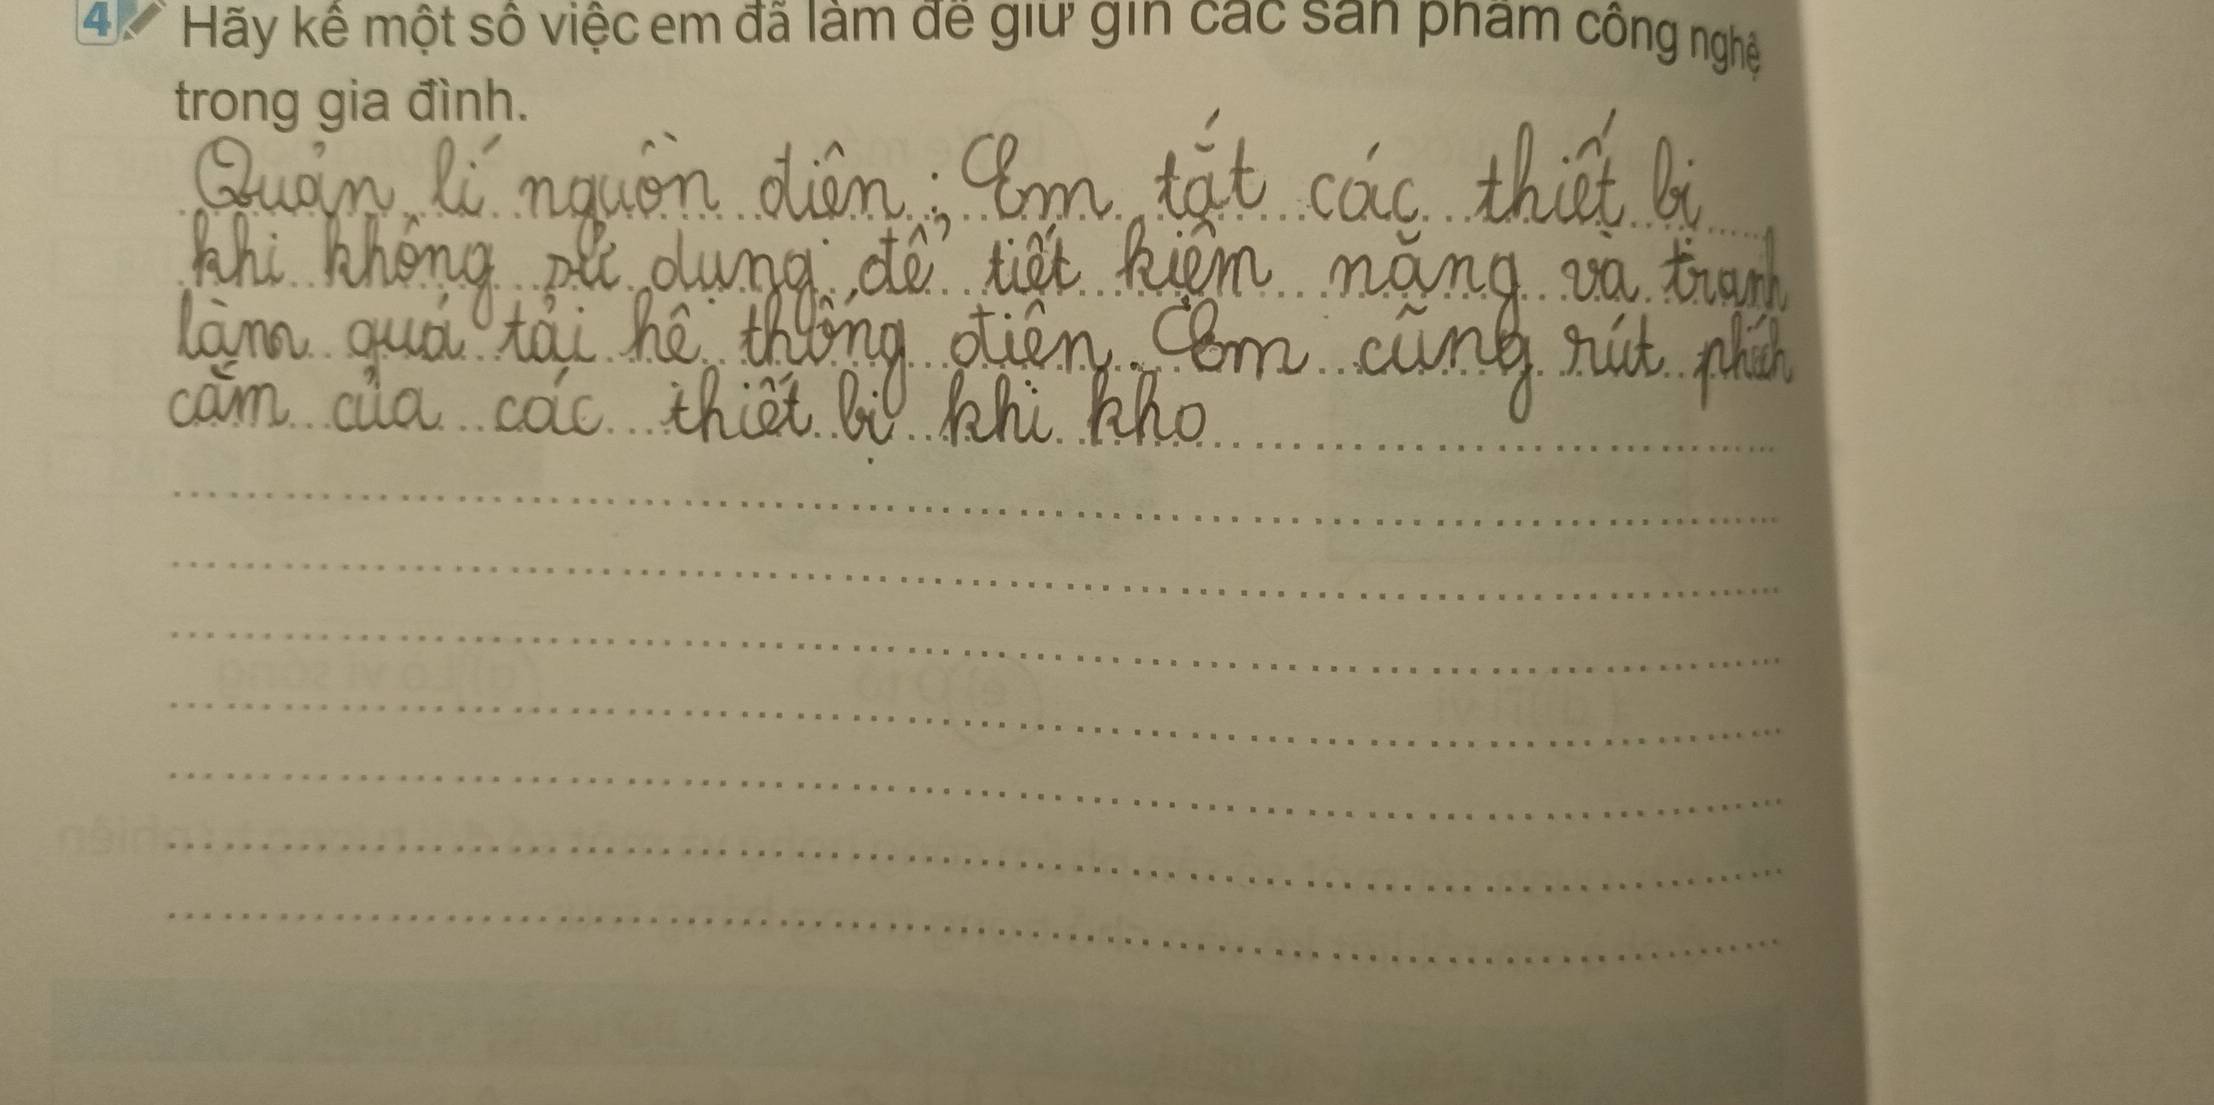 4 Hãy kể một số việc em đã làm để giữ gìn các sản phẩm công nghệ
trong gia đình.
Quản lí nguồn điên; Em tắt các thiết bị
khi không sử dụng để tiết kiệm năng và tranh
làm quá tải hê thống điên. Em cũng rút phích
cắm của các thiết bị khi kho